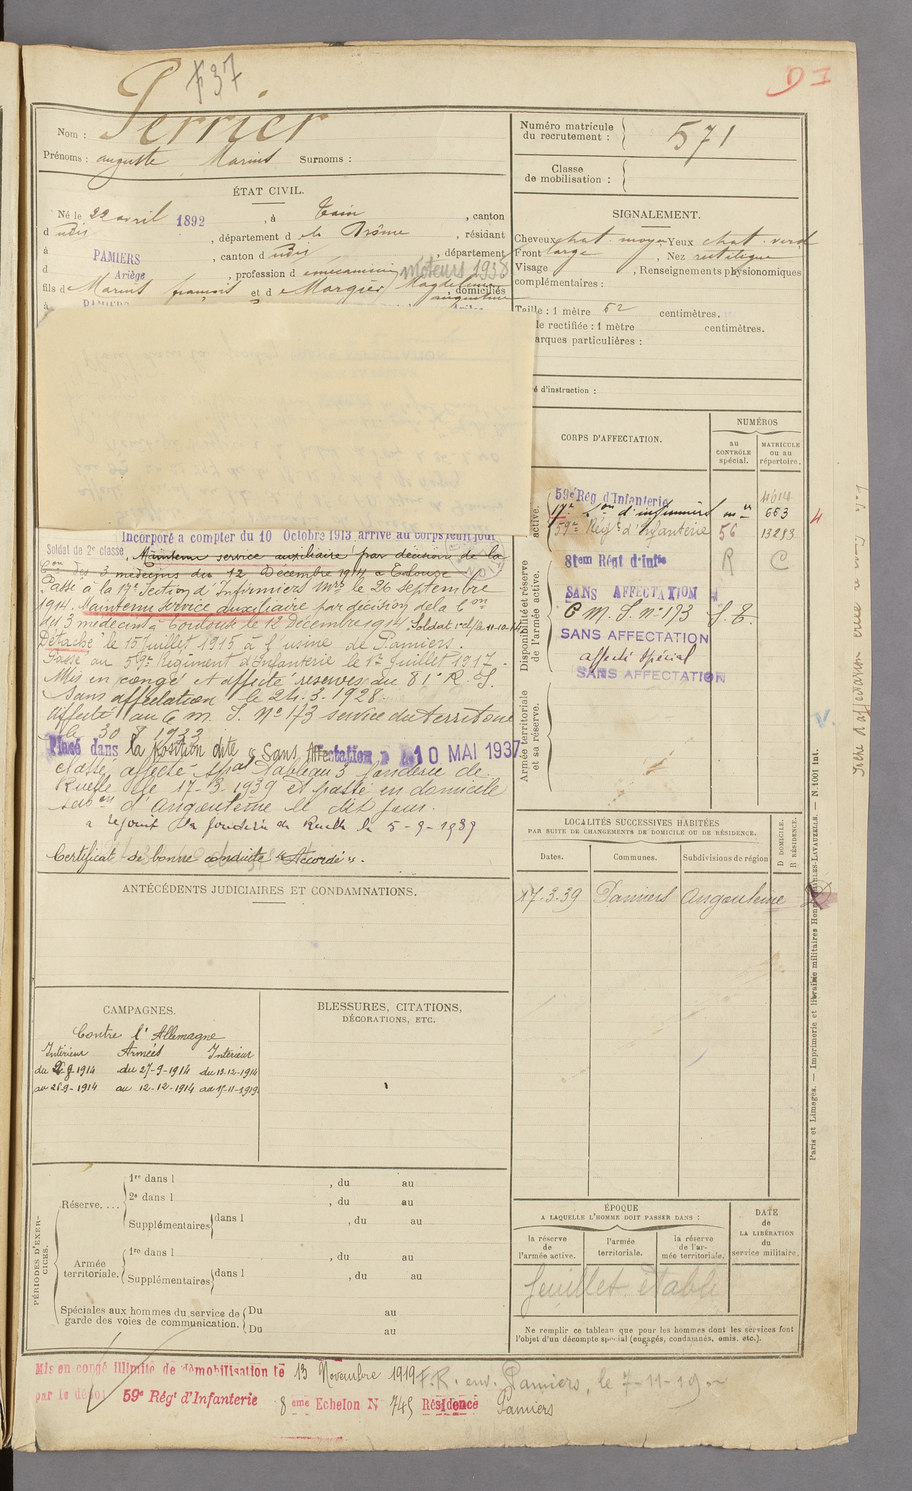 +37
Perrier
D I
Nom :
Prénoms : auguste Marius Surnoms :
ÉTAT CIVIL.
Né le 22 avril 1892, à Tain, canton
d udis, département d e la Drôme, résidant
à PAMIERS, canton d udis, département
d Ariège, profession d e mécanicien moteurs 1938
fils d e Marius françois et d e Margier, Magdeleine augustine, domiciliés
à PAMIERS
Numéro matricule du recrutement : 571
Classe de mobilisation :
SIGNALEMENT.
Cheveux chat. moyen Yeux chat. verd
Front large, Nez rectiligne
Visage, Renseignements physionomiques
complémentaires :
Taille : 1 mètre 62 centimètres.
le rectifiée : 1 mètre centimètres.
arques particulières :
é d'instruction :
Incorporé à compter du 10 Octobre 1913 arrivé au corps ledit jour
Soldat de 2e classe, Maintenu service auxiliaire par décision de la
Con des 3 médecins du 12 Décembre 1914 à Toulouse
Passé à la 17e Section d'Infirmiers Mres le 26 septembre
1914. Maintenu service auxiliaire par décision de la Con
des 3 médecins à Toulouse le 12 Décembre 1914
Détaché le 15 Juillet 1915 à l'usine de Pamiers.
Passé au 59e Régiment d'Infanterie le 1er Juillet 1917.
Mis en congé et affecté réserves du 81e R. I.
Sans affectation le 24.3.1928
affecté au C. M. I. No 173 service du territoire
le 30 1933
Placé dans la Position dite "Sans Affectation" le 10 MAI 1937
Classé affecté spal Tableau 3 fonderie de
Ruelle le 17-3-1939 et passé en domicile
subon d'Angoulême le dit jour.
a rejoint la fonderie de Ruelle le 5-9-1939
Certificat de bonne conduite "Accordé".
CORPS D'AFFECTATION.
NUMÉROS
au CONTRÔLE spécial.
MATRICULE ou au répertoire.
active.
59e Rég d'Infanterie 4614
17e Son d'infirmiers mres 653
59e Régt d'Infanterie 56 13283
Disponibilité et réserve de l'armée active.
81em Régt d'Infie R C
SANS AFFECTATION
C M. I. No 173 S. T.
SANS AFFECTATION
affecté spécial
SANS AFFECTATION
Armée territoriale et sa réserve.
4
V.
LOCALITÉS SUCCESSIVES HABITÉES
PAR SUITE DE CHANGEMENTS DE DOMICILE OU DE RÉSIDENCE.
Dates. Communes. Subdivisions de région
D DOMICILE.
R RÉSIDENCE.
17-3-39 Pamiers Angoulême
ANTÉCÉDENTS JUDICIAIRES ET CONDAMNATIONS.
CAMPAGNES.
Contre l'Allemagne
Intérieur Armées Intérieur
du 9-1914 du 27-9-1914 du 13-12-1914
au 26-9-1914 au 12-12-1914 au 17-11-1919
BLESSURES, CITATIONS,
DÉCORATIONS, ETC.
PÉRIODES D'EXERCICES.
Réserve....
1re dans l , du au
2e dans l , du au
Supplémentaires dans l , du au
Armée territoriale.
1re dans l , du au
Supplémentaires dans l , du au
Spéciales aux hommes du service de garde des voies de communication.
Du au
Du au
ÉPOQUE
A LAQUELLE L'HOMME DOIT PASSER DANS :
la réserve de l'armée active.
l'armée territoriale.
la réserve de l'armée territoriale.
DATE de LA LIBÉRATION du service militaire.
feuillet établi
Ne remplir ce tableau que pour les hommes dont les services font
l'objet d'un décompte spécial (engagés, condamnés, omis, etc.).
Mis en congé illimité de démobilisation le 13 Novembre 1919 F. R. env. Pamiers, le 7-11-19
par le dépôt 59e Régt d'Infanterie 8 ème Echelon N 745 Résidence Pamiers
Paris et Limoges. — Imprimerie et librairie militaires Henri CHARLES-LAVAUZELLE. — N. 1001 Int.